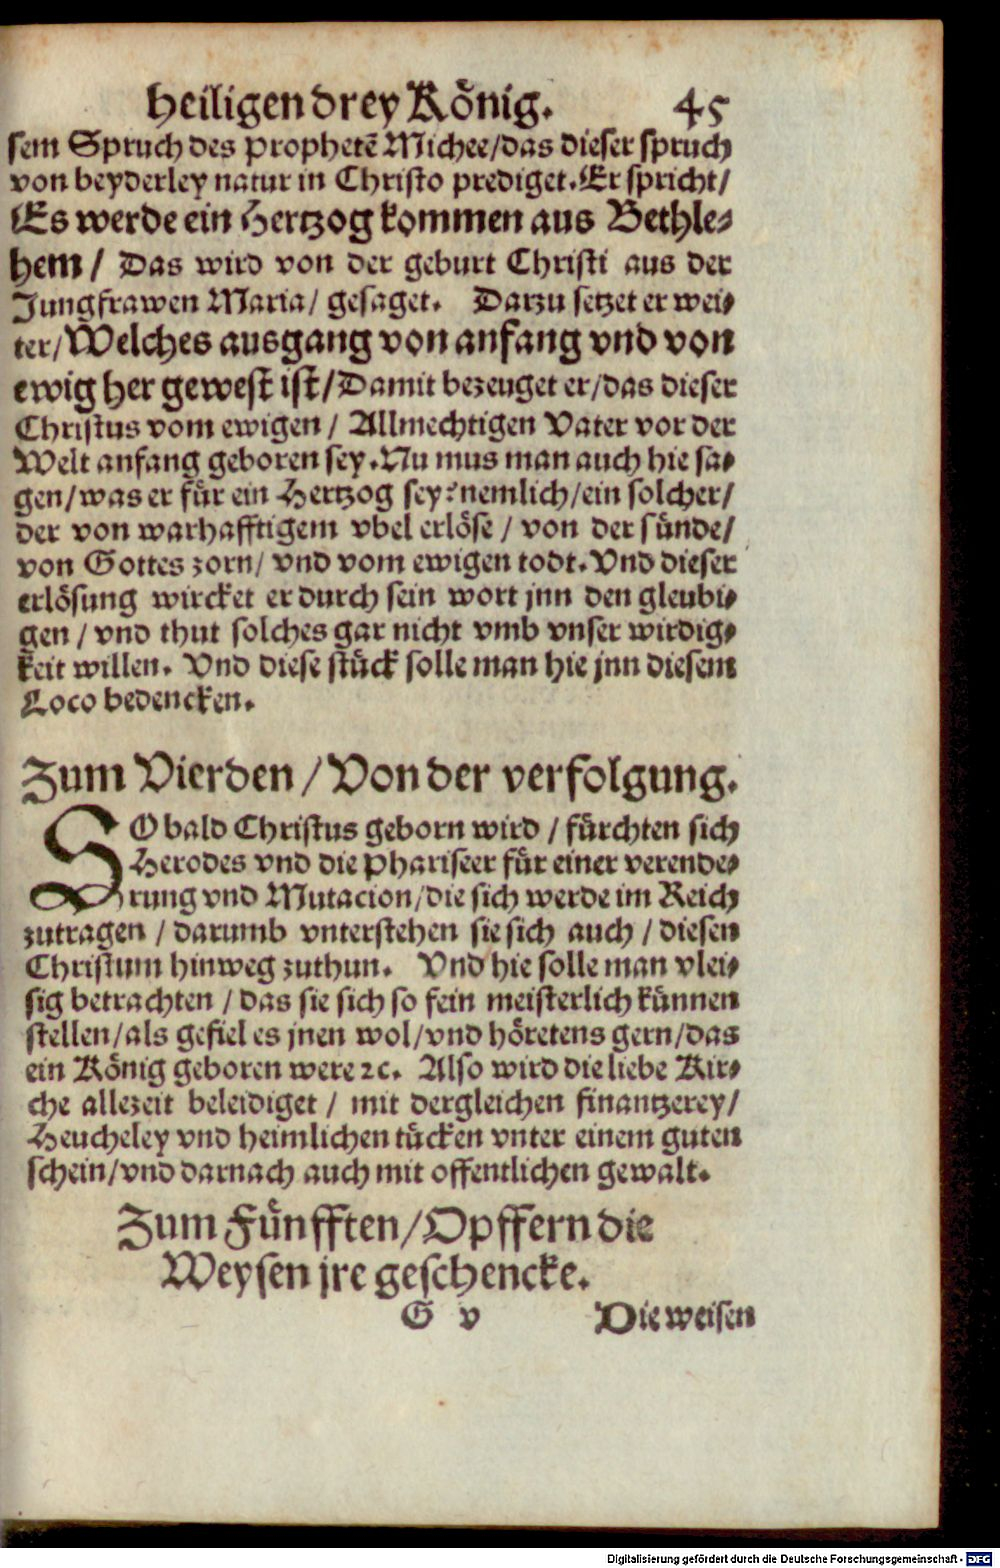 heiligen drey König. 45
sem Spruch des prophetē Michee/das dieser spruch
von beyderley natur in Christo prediget. Er spricht/
Es werde ein Hertzog kommen aus Bethle-
hem/ Das wird von der geburt Christi aus der
Jungfrawen Maria/ gesaget. Darzu setzet er wei-
ter/Welches ausgang von anfang vnd von
ewig her gewest ist/Damit bezeuget er/das dieser
Christus vom ewigen/ Allmechtigen Vater vor der
Welt anfang geboren sey. Nu mus man auch hie sa-
gen/was er für ein Hertzog sey? nemlich/ein solcher/
der von warhafftigem vbel erlöse/ von der sünde/
von Gottes zorn/ vnd vom ewigen todt. Vnd dieser
erlösung wircket er durch sein wort jnn den gleubi-
gen/ vnd thut solches gar nicht vmb vnser wirdig-
keit willen. Vnd diese stück solle man hie jnn diesem
Loco bedencken.
Zum Vierden/Von der verfolgung.
SO bald Christus geborn wird/ fürchten sich
Herodes vnd die Phariseer für einer verende-
rung vnd Mutacion/die sich werde im Reich
zutragen/ darumb vnterstehen sie sich auch/ diesen
Christum hinweg zuthun. Vnd hie solle man vlei-
sig betrachten/das sie sich so fein meisterlich künnen
stellen/als gefiel es jnen wol/vnd höretens gern/das
ein König geboren were ꝛc. Also wird die liebe Kir-
che allezeit beleidiget/ mit dergleichen finantzerey/
Heucheley vnd heimlichen tücken vnter einem guten
schein/vnd darnach auch mit offentlichen gewalt.
Zum Fünfften/Opffern die
Weysen jre geschencke.
G v Die weisen
Digitalisierung gefördert durch die Deutsche Forschungsgemeinschaft - DFG